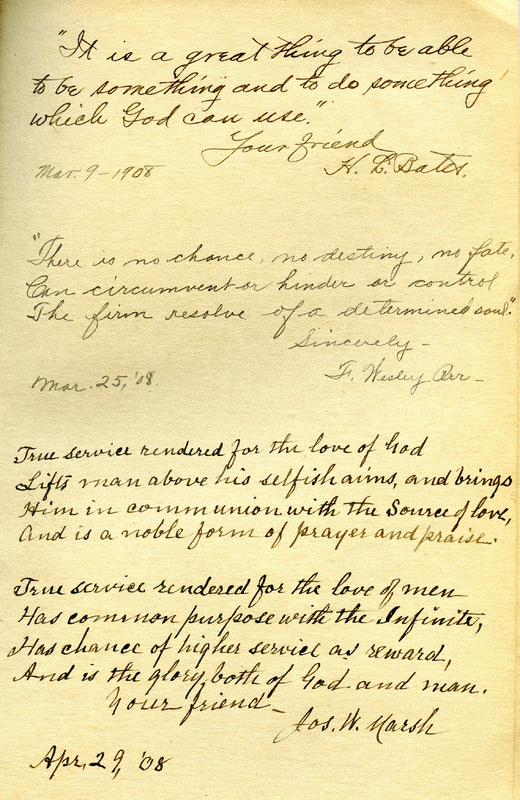 "It is a great thing to be able
to be something and to do something
which God can use."
Your friend
Mar. 9 - 1908 H. L. Bates.
"There is no chance, no destiny, no fate,
Can circumvent or hinder or control
The firm resolve of a determined soul."
Sincerely -
Mar. 25, '08. F. Wesley Orr -
True service rendered for the love of God
Lifts man above his selfish aims, and brings
Him in communion with the Source of love,
And is a noble form of prayer and praise.
True service rendered for the love of men
Has common purpose with the Infinite,
Has chance of higher service as reward,
And is the glory both of God and man.
Your friend -
Jos. W. Marsh
Apr. 29, '08